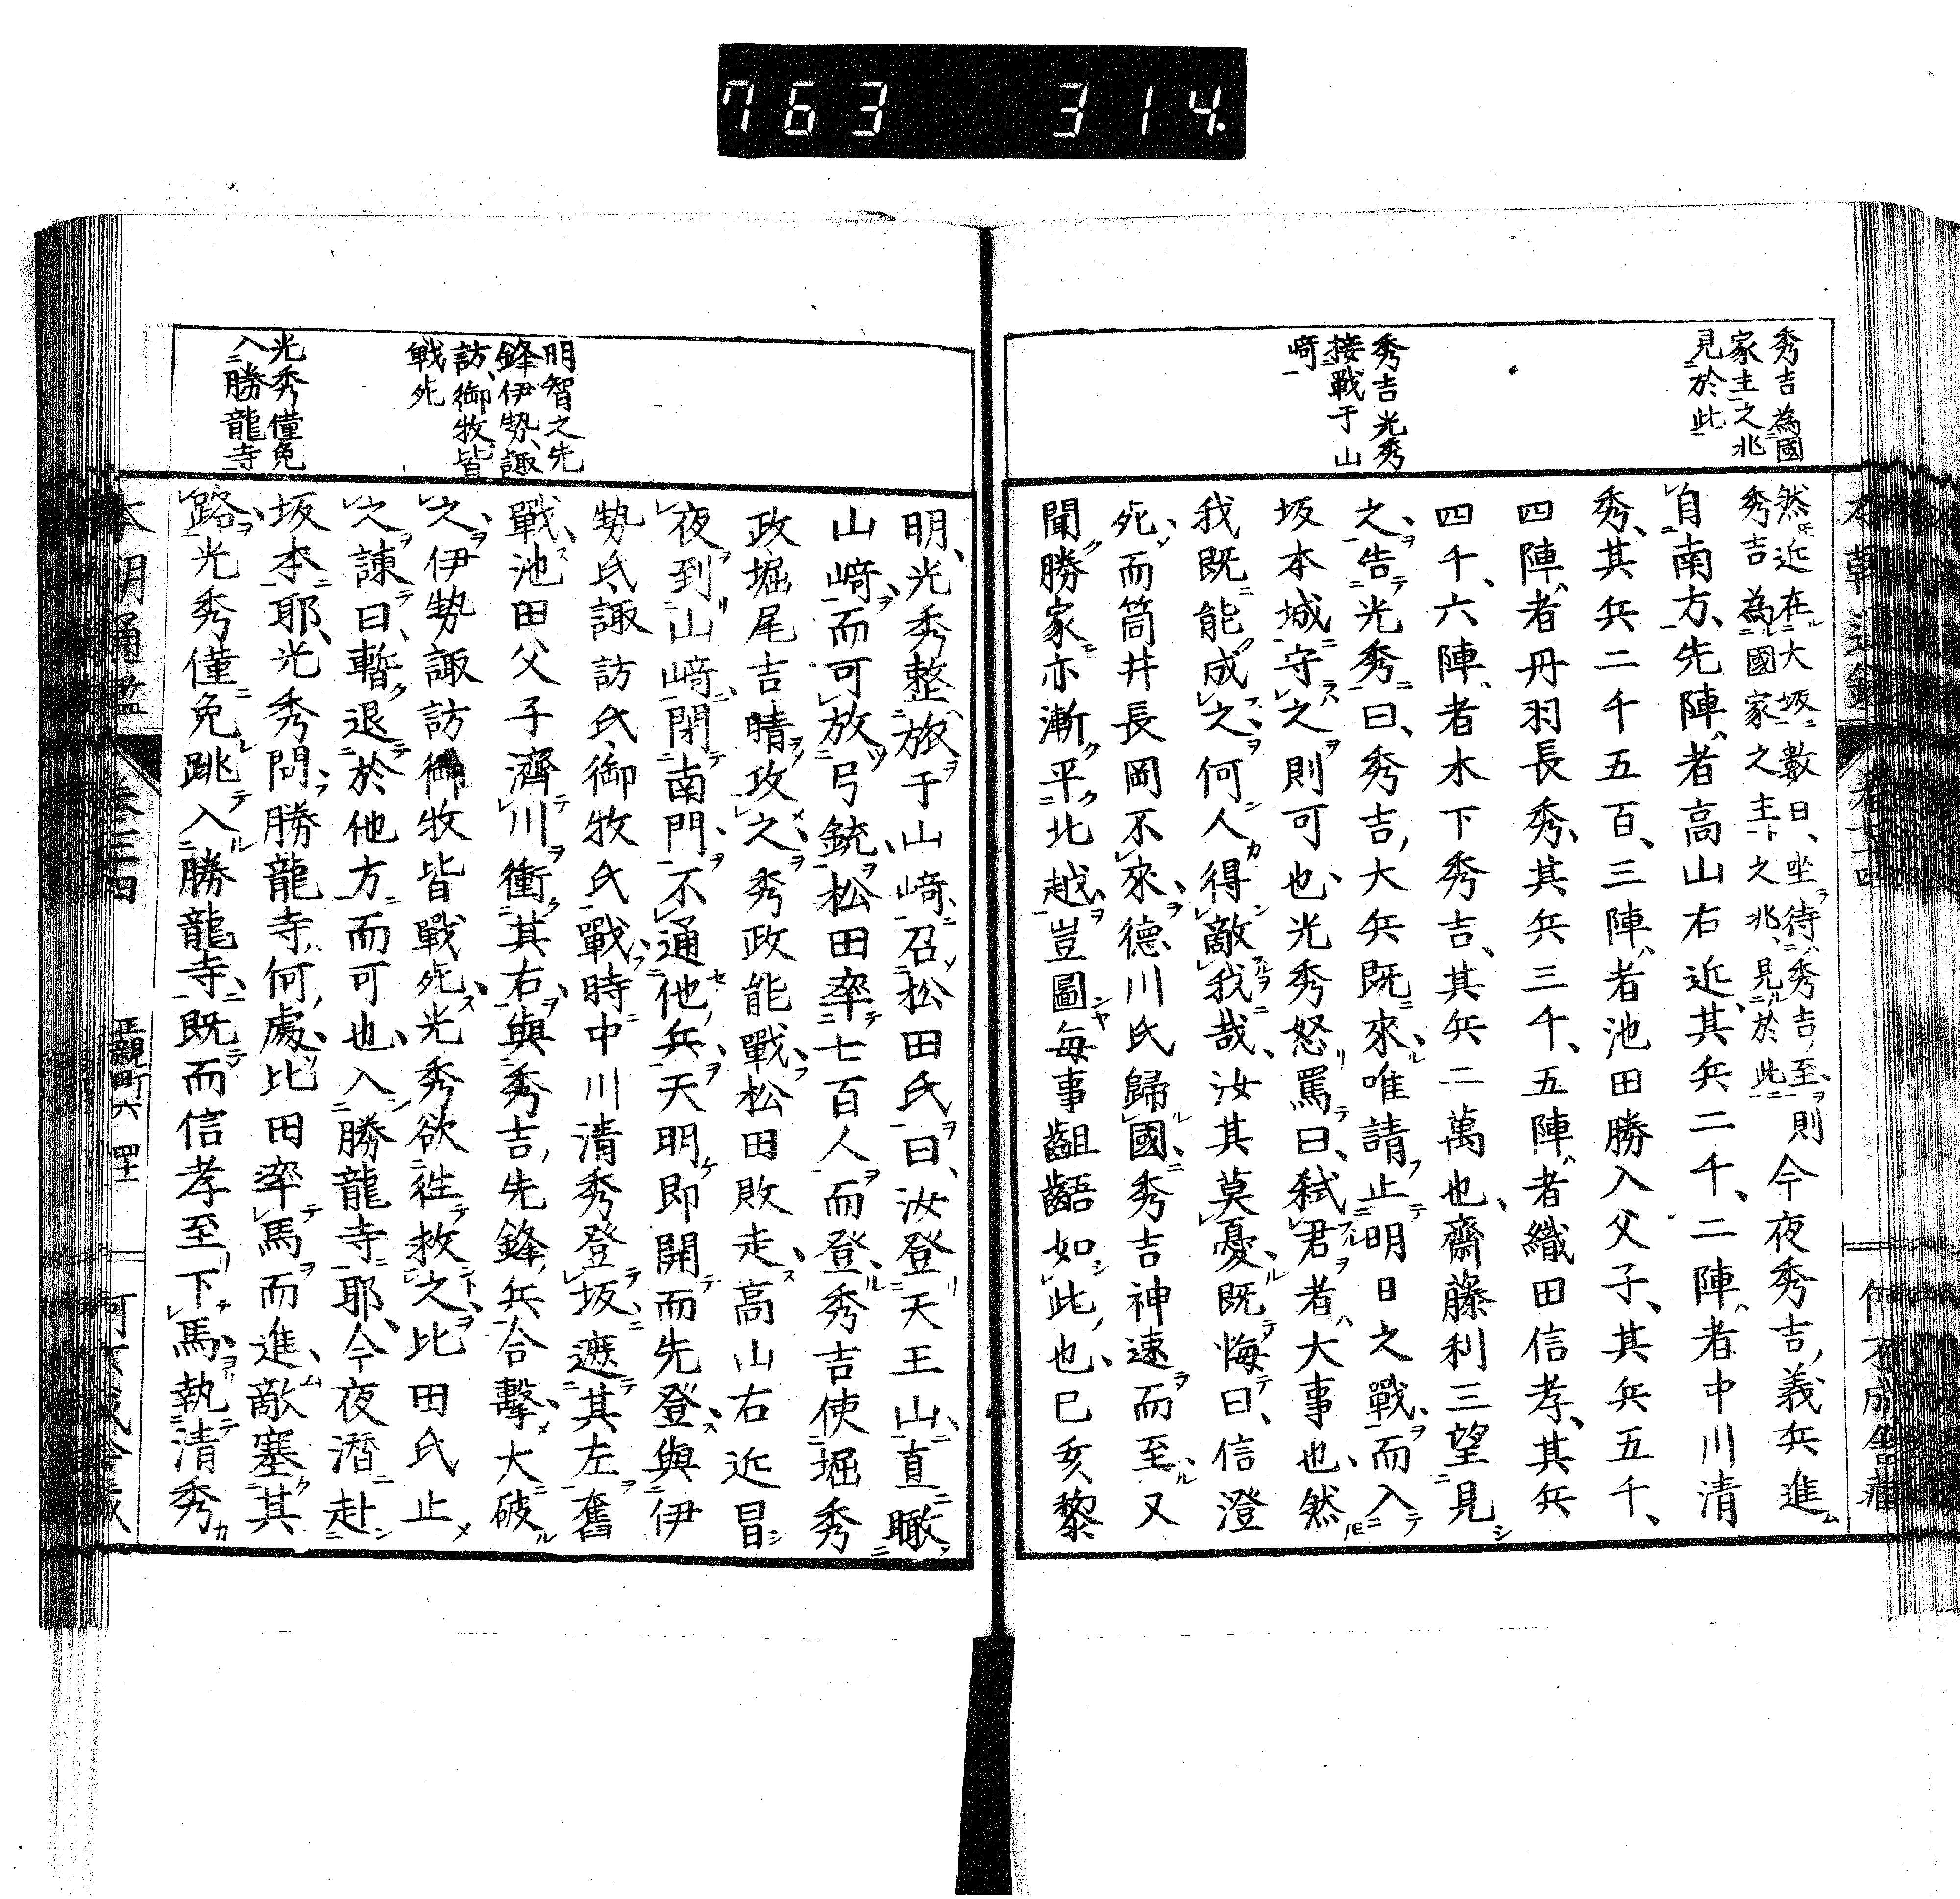 763 314.
秀吉為國
家主之兆
見於此
秀吉光秀
接戰于山
﨑
然近在大坂數日、坐待秀吉至則今夜秀吉義兵進
秀吉為國家之主之兆、見於此
自南方、先陣者高山右近、其兵二千、二陣者中川清
秀、其兵二千五百、三陣者池田勝入父子、其兵五千、
四陣者丹羽長秀、其兵三千、五陣者織田信孝、其兵
四千、六陣者木下秀吉、其兵二萬也、齋藤利三望見
之、告光秀曰、秀吉大兵既來、唯請止明日之戰、而入
坂本城守之則可也、光秀怒罵曰、弑君者大事也、然
我既能成之、何人得敵我哉、汝其莫憂、既悔曰、信澄
死、而筒井長岡不來、德川氏歸國、秀吉神速而至、又
聞勝家亦漸平北越、豈圖每事齟齬如此也、已亥黎
明智之先
鋒伊勢、諏
訪、御牧皆
戰死
光秀僅免
入勝龍寺
明、光秀整旅于山﨑、召松田氏曰、汝登天王山、直瞰
山﨑、而可放弓銃、松田率七百人而登、秀吉使堀秀
政堀尾吉晴攻之、秀政能戰、松田敗走、高山右近冒
夜到山﨑、閉南門、不通他兵、天明即開而先登、與伊
勢氏諏訪氏御牧氏戰、時中川清秀登坂、遮其左奮
戰、池田父子濟川衝其右、與秀吉先鋒兵合擊、大破
之、伊勢諏訪御牧皆戰死、光秀欲往救之、比田氏止
之諫曰、暫退於他方而可也、入勝龍寺耶、今夜潛赴
坂本耶、光秀問、勝龍寺何處、比田率馬而進、敵塞其
路、光秀僅免跳入勝龍寺、既而信孝至、下馬執清秀
正親町六 四十一